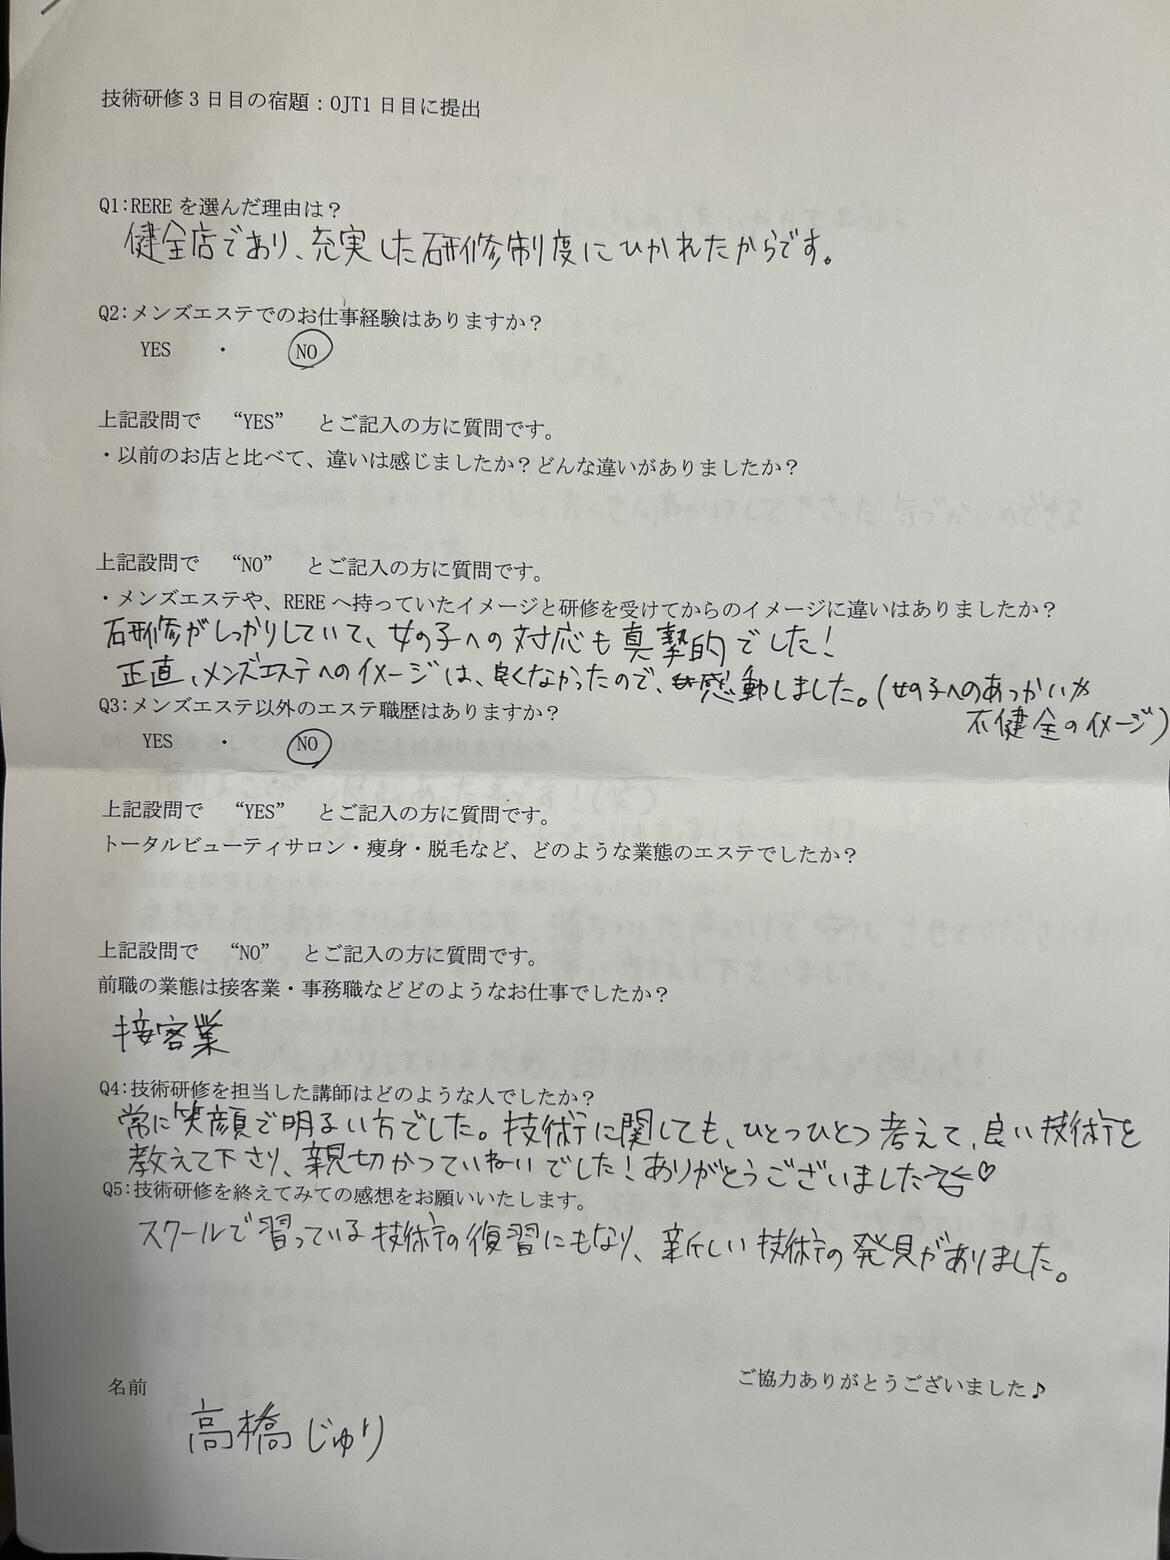 技術研修3日目の宿題：OJT1日目に提出
Q1:RERE を選んだ理由は？
健全店であり、充実した研修制度にひかれたからです。
Q2:メンズエステでのお仕事経験はありますか？
YES ・ NO
上記設問で “YES” とご記入の方に質問です。
・以前のお店と比べて、違いは感じましたか？どんな違いがありましたか？
上記設問で “NO” とご記入の方に質問です。
・メンズエステや、RERE へ持っていたイメージと研修を受けてからのイメージに違いはありましたか？
研修がしっかりしていて、女の子への対応も真摯的でした！
正直、メンズエステへのイメージは、良くなかったので、感動しました。(女の子へのあつかいが
不健全のイメージ)
Q3:メンズエステ以外のエステ職歴はありますか？
YES ・ NO
上記設問で “YES” とご記入の方に質問です。
トータルビューティサロン・痩身・脱毛など、どのような業態のエステでしたか？
上記設問で “NO” とご記入の方に質問です。
前職の業態は接客業・事務職などどのようなお仕事でしたか？
接客業
Q4:技術研修を担当した講師はどのような人でしたか？
常に笑顔で明るい方でした。技術に関しても、ひとつひとつ考えて、良い技術を
教えて下さり、親切かつていねいでした！ありがとうございました♡
Q5:技術研修を終えてみての感想をお願いいたします。
スクールで習っている技術の復習にもなり、新しい技術の発見がありました。
ご協力ありがとうございました♪
名前
高橋じゅり